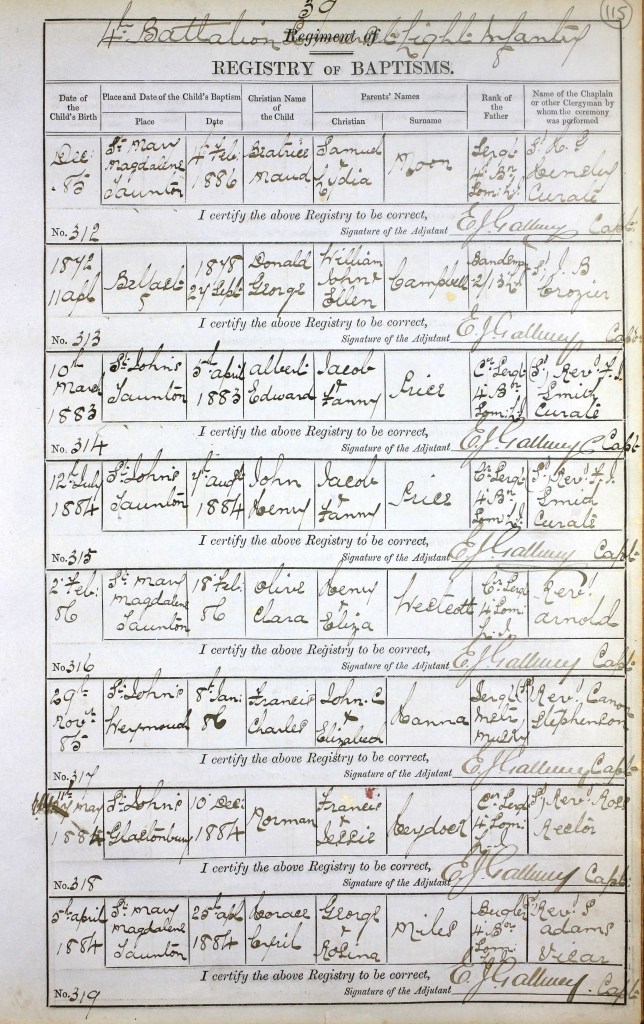 39
115
4th Battalion Somerset Light Infantry
Regiment of
REGISTRY OF BAPTISMS.
Date of the Child's Birth | Place and Date of the Child's Baptism | Christian Name of the Child | Parents' Names | Rank of the Father | Name of the Chaplain or other Clergyman by whom the ceremony was performed
Place | Date | Christian | Surname
Dec: | St Mary | 4th Feb: | Beatrice | Samuel | Moon | Sergt
85 | Magdalene | 1886 | Maud | & Lydia | 4 Bn
Taunton | Som: L.I. | Curate
I certify the above Registry to be correct,
No. 312 Signature of the Adjutant E J Gallwey Capt.
1872 | Belfast | 1878 | Donald | William | Campbell | S/ J B
11 apl | 27 Sept: | George | John & | 2/13th | Crozier
Ellen
I certify the above Registry to be correct,
No. 313 Signature of the Adjutant E J Gallwey Capt.
10th | St John's | 5th april | albert | Jacob | Price | Cr Sergt | S/ Revd F. J.
March | Taunton | 1883 | Edward | & | 4 Bn | Smith
1883 | Fanny | Som: L.I. | Curate
I certify the above Registry to be correct,
No. 314 Signature of the Adjutant E J Gallwey Capt
12th July | St John's | 7th augt | John | Jacob | Price | Cr Sergt | S/ Revd F. J.
1884 | Taunton | 1884 | Henry | & | 4 Bn | Smith
Fanny | Som: L.I. | Curate
I certify the above Registry to be correct,
No. 315 Signature of the Adjutant E J Gallwey Capt
2d Feb: | St Mary | 18 Feb: | Olive | Henry | Westcott | Cr Sergt | Revd
86 | Magdalene | 86 | Clara | & | 4 Som: | arnold
Taunton | Eliza | L. In
I certify the above Registry to be correct,
No. 316 Signature of the Adjutant E J Gallwey Capt.
29th | St John's | 8th Jan: | Francis | John C | Hanna | Sergt | S/ Revd Canon
Novr | Weymouth | 86 | Charles | & | Stephenson
85 | Elizabeth
I certify the above Registry to be correct,
No. 317 Signature of the Adjutant E J Gallwey Capt
11th
May | St John's | 10 Dec: | Norman | Francis | Heydock | Cr Sergt | S/ Revd Ross
1884 | Glastonbury | 1884 | & | 4 Som: | Rector
Jessie | L. I
I certify the above Registry to be correct,
No. 318 Signature of the Adjutant E J Gallwey Capt.
5th april | St Mary | 25th apl | Horace | George | Miles | Bugler | S/ Revd S
1884 | Magdalene | 1884 | Cyril | & | 4 Bn | adams
Taunton | Rosina | Som: L.I. | Vicar
I certify the above Registry to be correct,
No. 319 Signature of the Adjutant E J Gallwey Capt